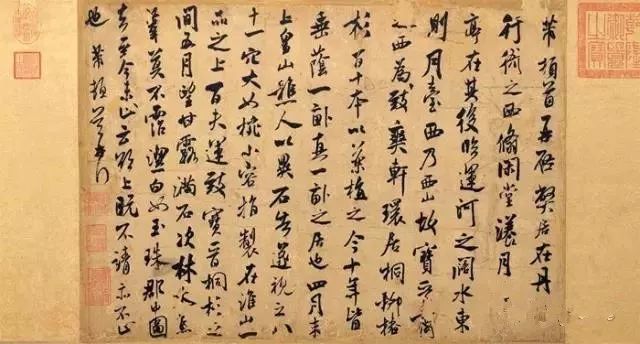 芾頓首再啓弊居在丹
行衙之西翛閑堂漾月
亭在其後臨運河之闊水東
則月臺西乃西山故寶晉齋
之西為致爽軒環居桐柳椿
杉百十本以藥植之今十年皆
垂蔭一畝真一畝之居也四月末
上皇山樵人以異石告遂視之八
十一穴大如椀小容指製在淮山一
品之上百夫運致寶晉桐杉之
間五月望甘露滿石次林木焦
葦莫不霑潔白如玉珠郡中圖
去至今未止云欲上既不請亦不止
也芾頓首